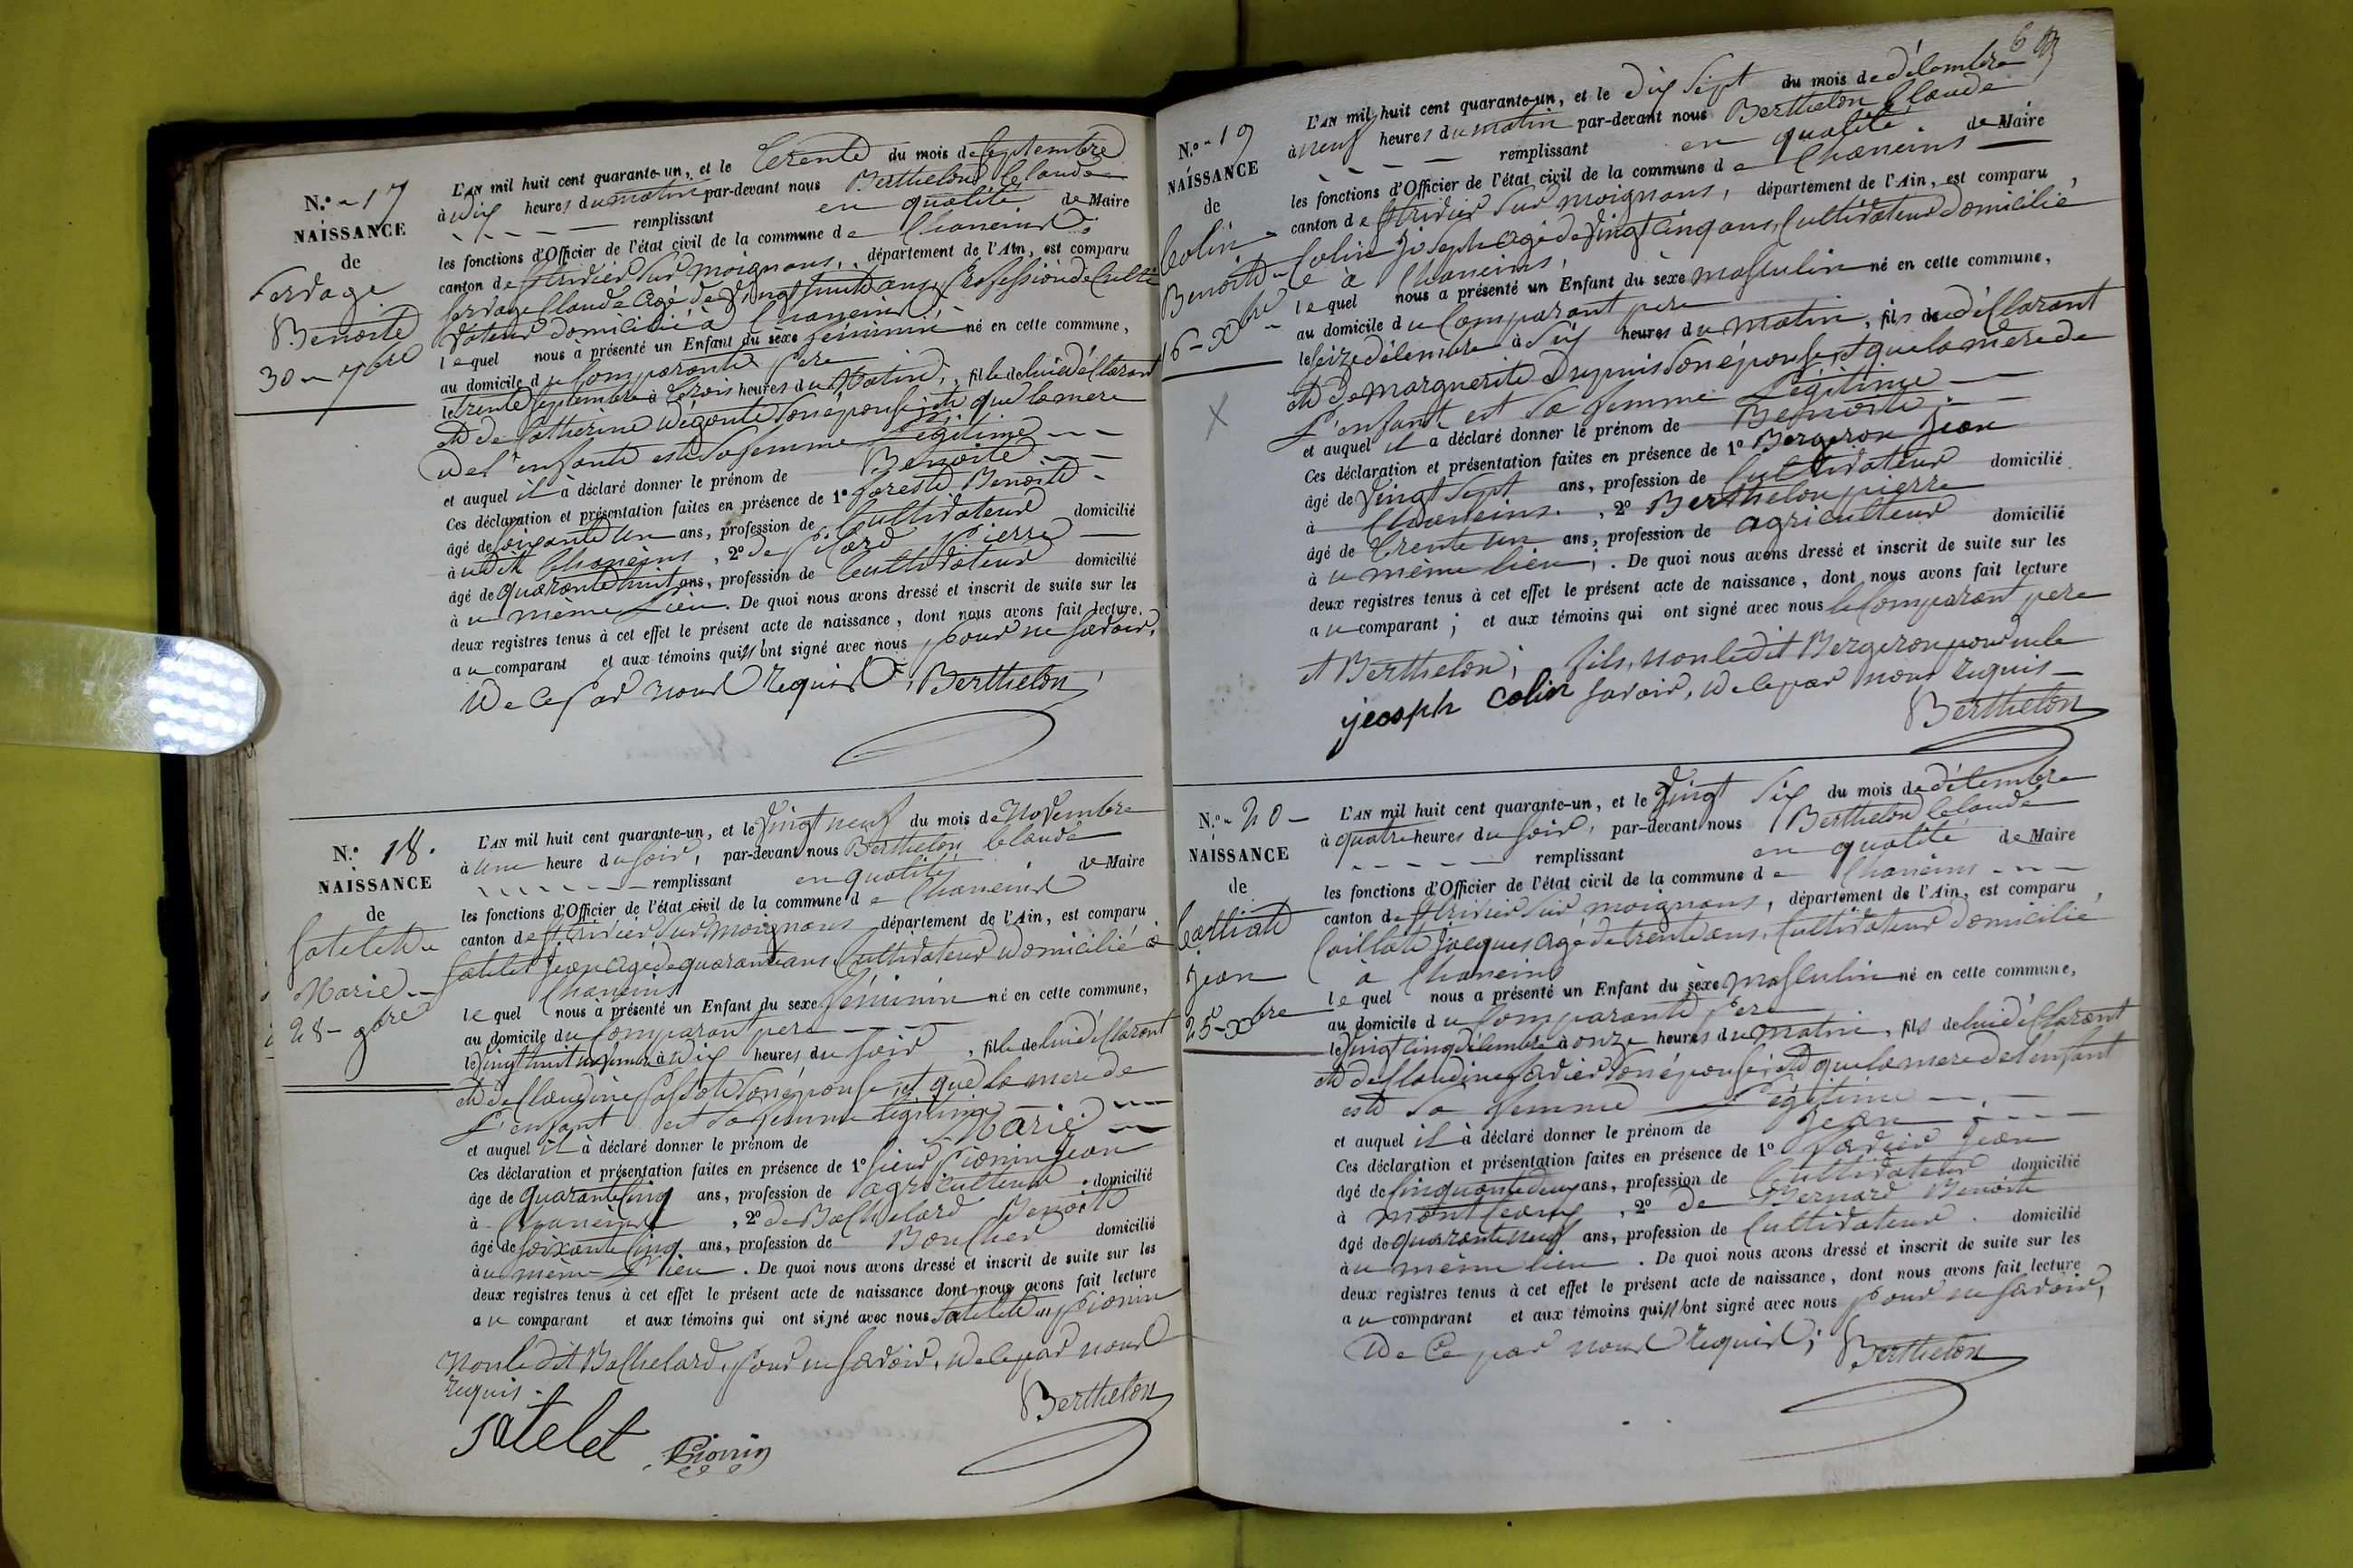 N.º 17
NAISSANCE
de
Ferdage
Benoite
30 - 7bre
L'AN mil huit cent quarante-un, et le Trente du mois de Septembre
à Dix heures du matin par-devant nous Berthelon Claude
remplissant en qualité de Maire
les fonctions d'Officier de l'état civil de la commune de Chaneins
canton de St trivier Sur moignans, département de l'Ain, est comparu
Claude agé de Vingt huit ans, Profession de Culti
vateur domicilié à Chaneins
lequel nous à présenté un Enfant du sèxe féminin né en cette commune,
au domicile du Comparant Pere
le trente Septembre à Trois heures du Matin, fille de lui déclarant
et de Catherine son épouse, et que la mere
de l'enfant est Sa femme Légitime
et auquel il à déclaré donner le prénom de Benoite
Ces déclaration et présentation faites en présence de 1º forest Benoit
âgé de Soixante Un ans, profession de Cultivateur domicilié
à udit Chaneins, 2º de Pierre
âgé de quarante huit ans, profession de Cultivateur domicilié
à u même Lieu. De quoi nous avons dressé et inscrit de suite sur les
deux registres tenus à cet effet le présent acte de naissance, dont nous avons fait lecture.
au comparant et aux témoins qui n'ont signé avec nous, Pour ne Savoir,
De Ce Par nous Requis; Berthelon
N.º 18.
NAISSANCE
de
Satelet
Marie
28 - 9bre
L'AN mil huit cent quarante-un, et le Vingt neuf du mois de Novembre
à une heure du Soir, par-devant nous Berthelon Claude
remplissant en qualité de Maire
les fonctions d'Officier de l'état civil de la commune de Chaneins
canton de St trivier Sur moignans département de l'Ain, est comparu
Satelet Jean agé de quarante ans Cultivateur Domicilié à
Chaneins
lequel nous à présenté un Enfant du sexe féminin né en cette commune,
au domicile du Comparant pere
le Vingt huit novembre à Dix heures du Soir, fille de lui déclarant
et de Claudine son épouse, et que la mere de
L'enfant est Sa femme Légitime
et auquel il à déclaré donner le prénom de Marie
Ces déclaration et présentation faites en présence de 1º Sieur Pionin Jean
âge de quarante Cinq ans, profession de agriculteur domicilié
à Chaneins, 2º de Bachelard Benoit
âgé de Soixante Cinq ans, profession de Boucher domicilié
à u même Lieu. De quoi nous avons dressé et inscrit de suite sur les
deux registres tenus à cet effet le présent acte de naissance dont nous avons fait lecture
au comparant et aux témoins qui ont signé avec nous Satelet et Pionin
Non le dit Bachelard, Pour ne Savoir, De Ce par nous
requis.
Berthelon
Satelet Pionin
N.º 19
NAISSANCE
de
Colin
Benoit
16 - Xbre
X
L'AN mil huit cent quarante-un, et le Dix Sept du mois de décembre
à neuf heures du matin par-devant nous Berthelon Claude
remplissant en qualité de Maire
les fonctions d'Officier de l'état civil de la commune de Chaneins
canton de St trivier Sur moignans, département de l'Ain, est comparu,
Colin Joseph agé de Vingt Cinq ans, Cultivateur domicilié
à Chaneins,
lequel nous a présenté un Enfant du sèxe masculin né en cette commune,
au domicile du Comparant pere
le Seize décembre à Six heures du matin, fils de déclarant
et de marguerite Dupuis Son épouse, et que la mere de
L'enfant est Sa femme Légitime
et auquel il a déclaré donner le prénom de Benoit
Ces déclaration et présentation faites en présence de 1º Bergeron Jean
âgé de Vingt Sept ans, profession de Cultivateur domicilié
à Chaneins, 2º Berthelon pierre
âgé de Trente un ans, profession de agriculteur domicilié
à u même lieu; . De quoi nous avons dressé et inscrit de suite sur les
deux registres tenus à cet effet le présent acte de naissance, dont nous avons fait lecture
au comparant; et aux témoins qui ont signé avec nous le Comparant pere
et Berthelon; fils, non le dit Bergeron pour ne le
jeosph colin Savoir, De Ce par nous requis
Berthelon
N.º 20
NAISSANCE
de
Jean
25 - Xbre
L'AN mil huit cent quarante-un, et le Vingt Six du mois de décembre
à quatre heures du Soir, par-devant nous Berthelon Claude
remplissant en qualité de Maire
les fonctions d'Officier de l'état civil de la commune de Chaneins
canton de St trivier Sur moignans, département de l'Ain, est comparu,
Caillat Jacques agé de trente ans, Cultivateur domicilié
à Chaneins
lequel nous a présenté un Enfant du sèxe masculin né en cette commune,
au domicile du Comparant Pere
le Vingt Cinq décembre à onze heures du matin, fils de lui déclarant
et de Claudine Son épouse, et que la mere de l'enfant
est Sa femme Légitime
et auquel il à déclaré donner le prénom de Jean
Ces déclaration et présentation faites en présence de 1º Jean
âgé de Cinquante deux ans, profession de Cultivateur domicilié
à Montceaux, 2º de Bernard Benoit
âgé de quarante neuf ans, profession de Cultivateur domicilié
à u même lieu. De quoi nous avons dressé et inscrit de suite sur les
deux registres tenus à cet effet le présent acte de naissance, dont nous avons fait lecture
au comparant et aux témoins qui n'ont signé avec nous Pour ne Savoir,
De Ce par nous Requis; Berthelon